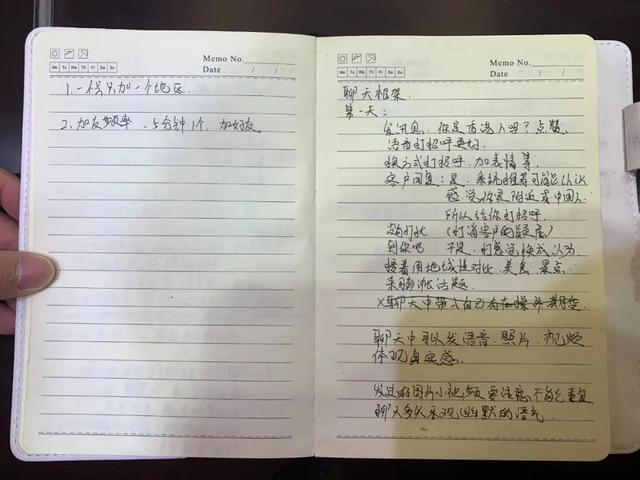 Memo No.
Mo Tu We Th Fr Sa Su
Date / /
1. 一号只加一个地区.
2. 加友频率、5分钟1个. 加好友
Memo No.
Mo Tu We Th Fr Sa Su
Date / /
聊天框架.
第一天:
发讯息, 你是香港人吗? 点赞.
语音打招呼更好.
换方式打招呼. 加表情等.
客户回复: 是. 系统推荐可能认识
感觉你是附近或中国人.
所以给你打招呼.
(打消客户的疑虑)
到你吧 不是. 打感觉换成以为.
接着用地域性对比. 美食. 景点.
来膨派话题.
X聊天中带入自己
聊天中可以发语音. 照片. 视频
体现真实感.
发过的图片小视频要注意, 不能重复
聊天多以乐观, 幽默的语气.